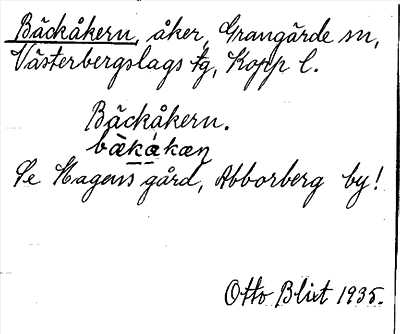 Bäckåkern, åker, Grangärde sn,
Västerbergslags tg, Kopp l.
Bäckåkern.
bækåkæṇ
Se Hagens gård, Abborberg by!
Otto Blixt 1935.